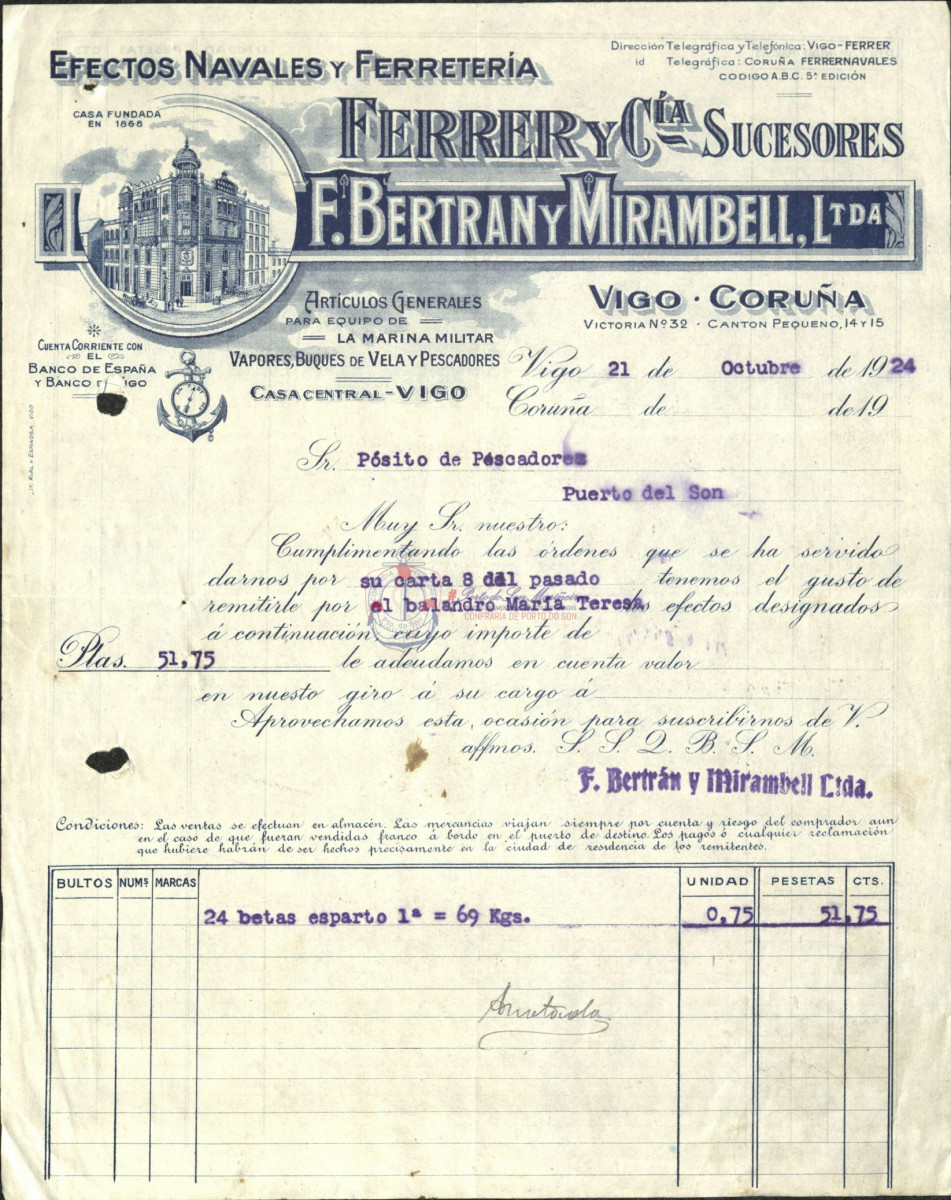 EFECTOS NAVALES Y FERRETERÍA
Dirección Telegráfica y Telefónica: VIGO-FERRER
id Telegráfica: CORUÑA FERRERNAVALES
CODIGO A.B.C. 5ª EDICIÓN
CASA FUNDADA
EN 1866
FERRER Y CÍA SUCESORES
F. BERTRAN Y MIRAMBELL, LTDA
ARTÍCULOS GENERALES
PARA EQUIPO DE
LA MARINA MILITAR
VAPORES, BUQUES DE VELA Y PESCADORES
CASA CENTRAL-VIGO
VIGO · CORUÑA
VICTORIA Nº 32 · CANTON PEQUEÑO, 14 Y 15
CUENTA CORRIENTE CON
EL
BANCO DE ESPAÑA
Y BANCO DE VIGO
Vigo 21 de Octubre de 1924
Coruña de de 19
Sr. Pósito de Pescadores
Puerto del Son
Muy Sr. nuestro:
Cumplimentando las órdenes que se ha servido
darnos por su carta 8 del pasado tenemos el gusto de
remitirle por el balandro María Teresa los efectos designados
á continuación, cuyo importe de
CONFRARÍA DE PORTO DO SON
Ptas. 51,75 le adeudamos en cuenta valor
en nuesto giro á su cargo á
Aprovechamos esta, ocasión para suscribirnos de V.
affmos. S. S. Q. B. S. M.
F. Bertrán y Mirambell Ltda.
Condiciones: Las ventas se efectuan en almacén. Las mercancias viajan siempre por cuenta y riesgo del comprador aun
en el caso de que fueran vendidas franco á bordo en el puerto de destino. Los pagos ó cualquier reclamación
que hubiere habrán de ser hechos precisamente en la ciudad de residencia de los remitentes.
BULTOS NUMS MARCAS UNIDAD PESETAS CTS.
24 betas esparto 1ª = 69 Kgs. 0,75 51,75